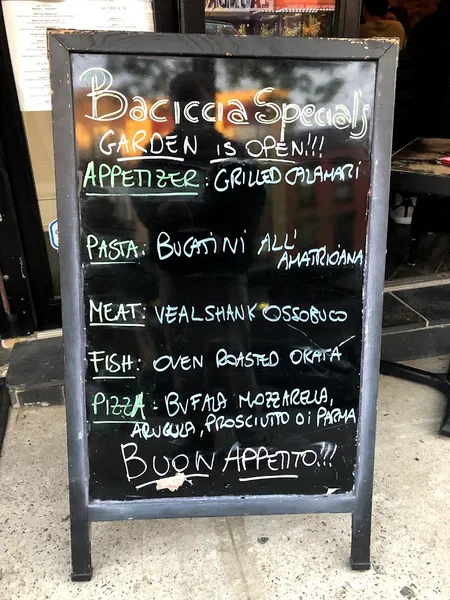 Baciccia Special's
GARDEN IS OPEN!!!
APPETIZER: GRILLED CALAMARI
PASTA: BUCATINI ALL'
AMATRICIANA
MEAT: VEAL SHANK OSSOBUCO
FISH: OVEN ROASTED ORATA
PIZZA: BUFALA MOZZARELLA,
ARUGULA, PROSCIUTTO DI PARMA
BUON APPETITO!!!